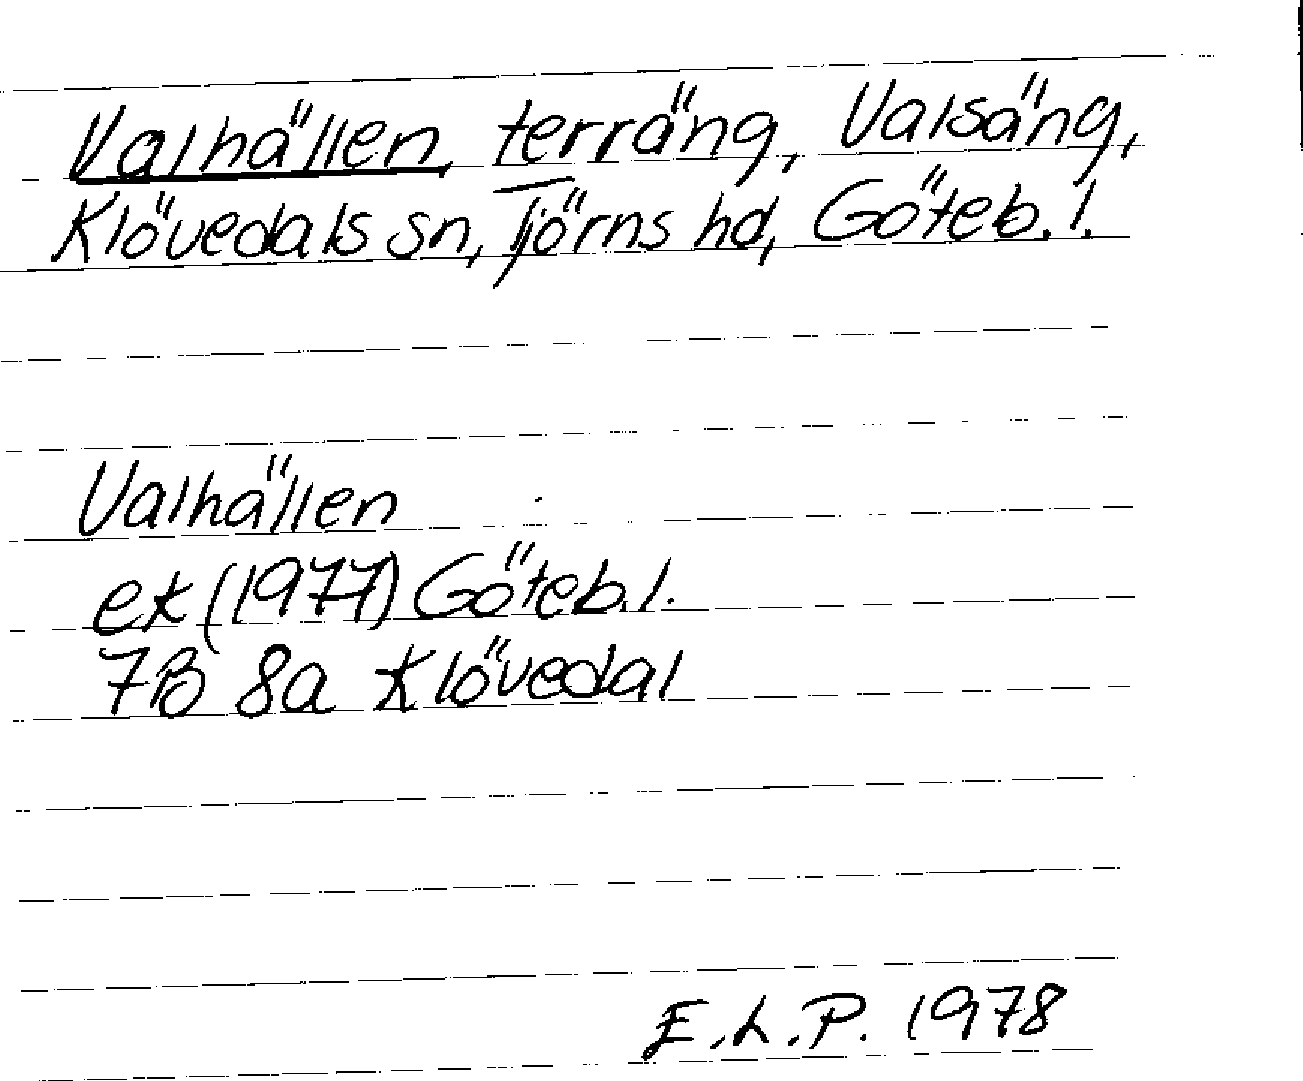 Valhällen, terräng, Valsäng,
Klövedals sn, Tjörns hd, Göteb. l.
Valhällen
ek (1977) Göteb. l.
7B 8a Klövedal
E.L.P. 1978